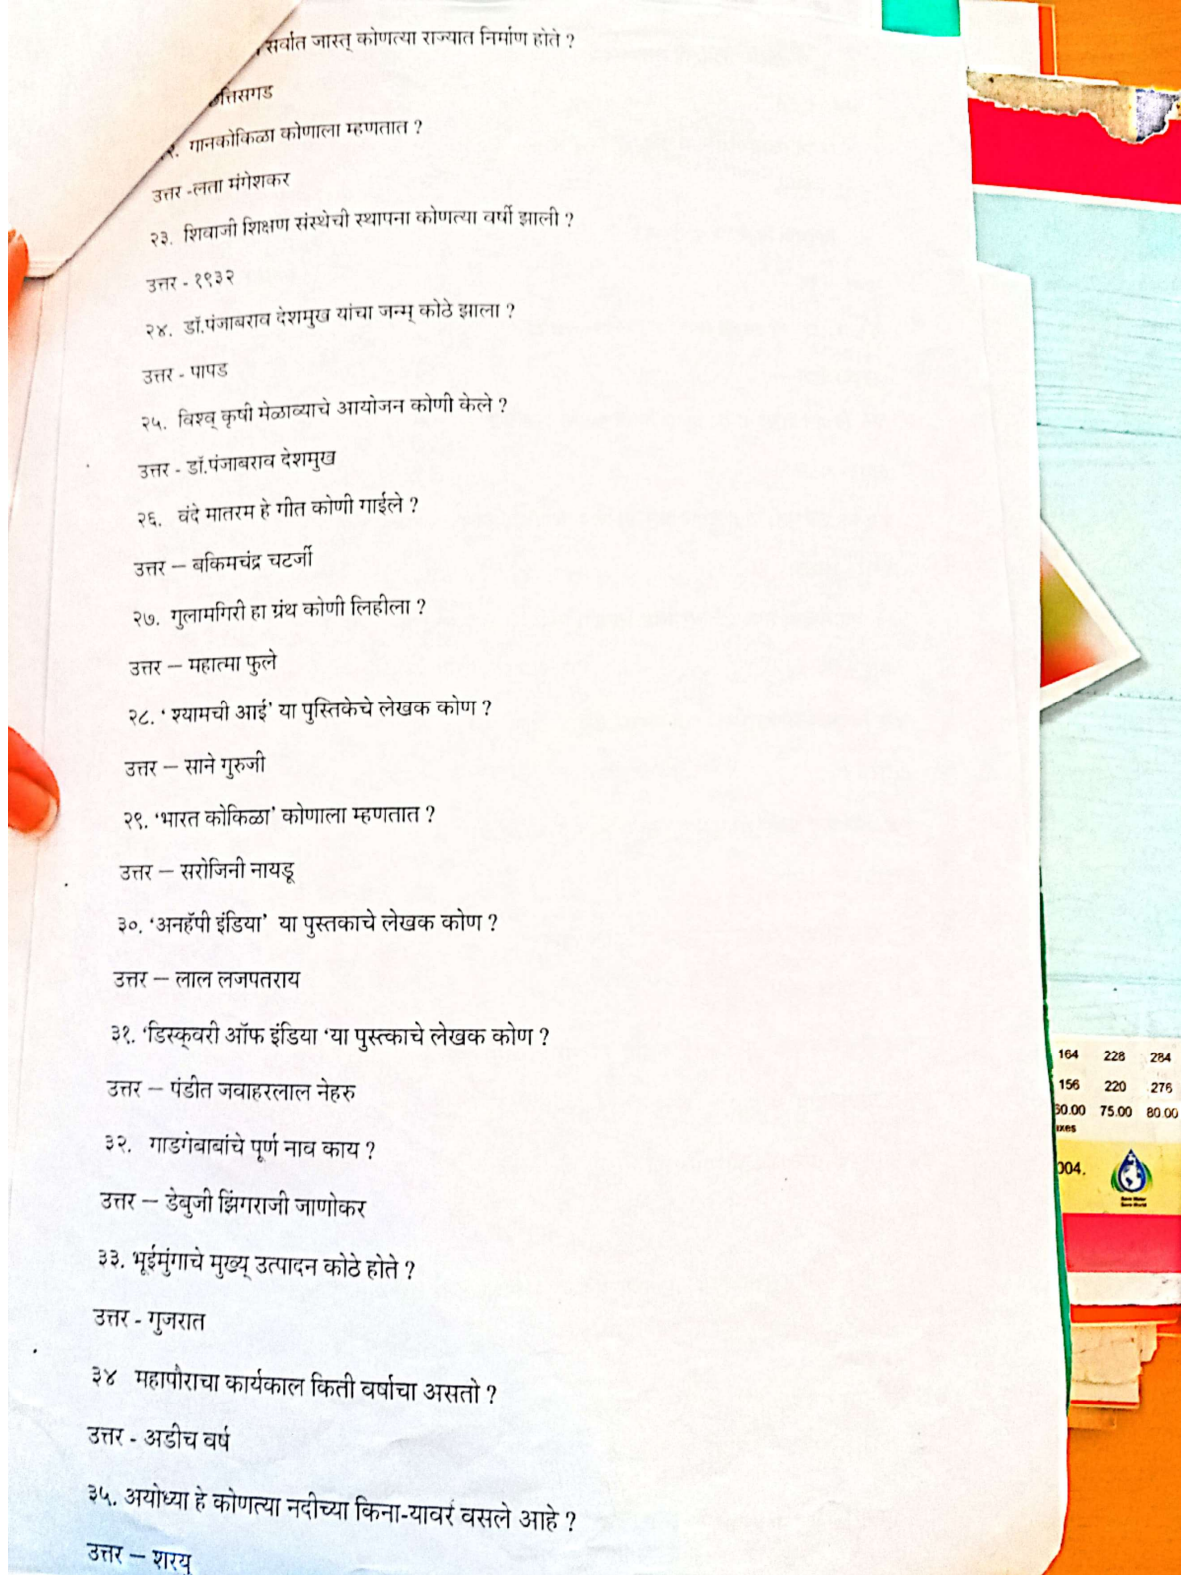 सर्वात जास्त् कोणत्या राज्यात निर्माण होते ?
त्तिसगड
२. गानकोकिळा कोणाला म्हणतात ?
उत्तर -लता मंगेशकर
२३. शिवाजी शिक्षण संस्थेची स्थापना कोणत्या वर्षी झाली ?
उत्तर - १९३२
२४. डॉ.पंजाबराव देशमुख यांचा जन्म् कोठे झाला ?
उत्तर - पापड
२५. विश्व् कृषी मेळाव्याचे आयोजन कोणी केले ?
उत्तर - डॉ.पंजाबराव देशमुख
२६. वंदे मातरम हे गीत कोणी गाईले ?
उत्तर – बकिमचंद्र चटर्जी
२७. गुलामगिरी हा ग्रंथ कोणी लिहीला ?
उत्तर – महात्मा फुले
२८. ‘ श्यामची आई’ या पुस्तिकेचे लेखक कोण ?
उत्तर – साने गुरुजी
२९. ‘भारत कोकिळा’ कोणाला म्हणतात ?
उत्तर – सरोजिनी नायडू
३०. ‘अनहॅपी इंडिया’ या पुस्तकाचे लेखक कोण ?
उत्तर – लाल लजपतराय
३१. ‘डिस्क्वरी ऑफ इंडिया ‘या पुस्त्काचे लेखक कोण ?
उत्तर – पंडीत जवाहरलाल नेहरु
३२. गाडगेबाबांचे पूर्ण नाव काय ?
उत्तर – डेबुजी झिंगराजी जाणोकर
३३. भूईमुंगाचे मुख्य् उत्पादन कोठे होते ?
उत्तर - गुजरात
३४ महापौराचा कार्यकाल किती वर्षाचा असतो ?
उत्तर - अडीच वर्ष
३५. अयोध्या हे कोणत्या नदीच्या किना-यावर वसले आहे ?
उत्तर – शरयु
164 228 284
156 220 276
60.00 75.00 80.00
axes
004.
Save Water
Save World